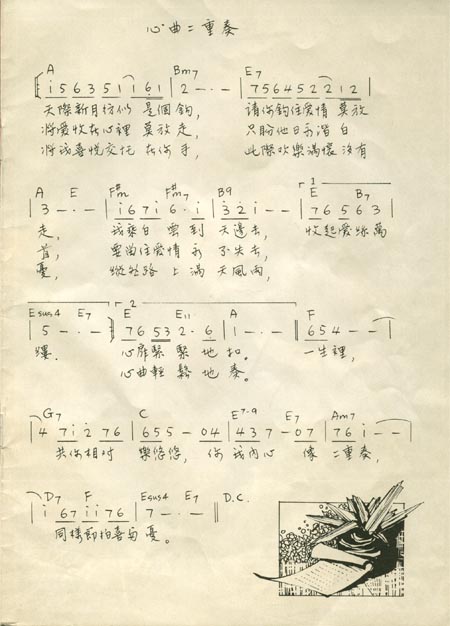 心曲二重奏
A Bm7 E7
i 5 6 3 5 1 1 6 1 | 2 - · - | 7 5 6 4 5 2 2 1 2 |
天際新月彷似 是個鈎, 請你鈎住愛情 莫放
將愛收在心裡 莫放走, 只盼他日永偕 白
將我喜悅交托 在你手, 此際歡樂滿懷 沒有
A E F#m F#m7 B9 1 E B7
3 - · - | i 6 7 i 6 · i | 3 2 i - - | 7 6 5 6 3 |
走, 我乘白 雲到 天邊去, 收起愛絲萬
首, 雲曲住愛情 永 不失去,
憂, 縱然路 上滿 天風雨,
Esus4 E7 2 E E11 A F
5 - · - 7 6 5 3 2 · 6 | 1 - · - 6 5 4 - -
縷. 心扉緊 緊 地扣。 一生裡,
心曲輕 鬆 地奏。
G7 C E7-9 E7 Am7
4 7 i 2 7 6 | 6 5 5 - 0 4 | 4 3 7 - 0 7 | 7 6 i - -
共你相對 樂悠悠, 你 我內心 像 二重奏,
D7 F Esus4 E7 D.C.
i 6 7 i i 7 6 | 7 - · -
同樣節拍喜與 憂。